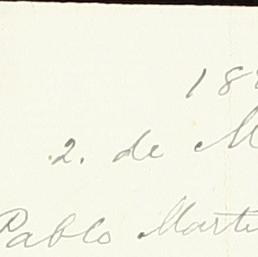 18
2. de M
Pablo Marti